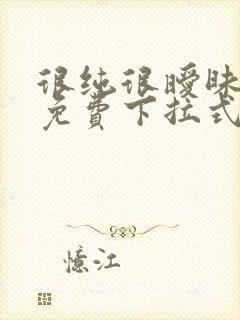 很纯很暧昧
免费下拉式
憶江